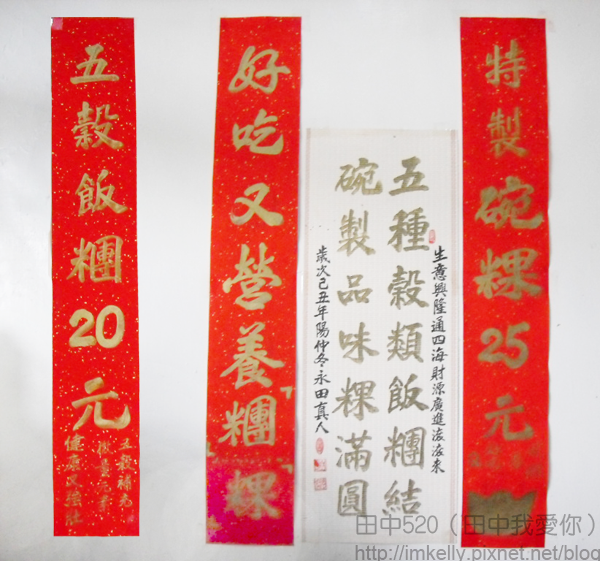 特製碗粿25元
生意興隆通四海財源廣進滾滾來
五種穀類飯糰結
碗製品味粿滿圓
歲次己丑年陽仲冬永田真人
好吃又營養糰粿
五穀飯糰20元
健康又強壯
田中520（田中我愛你）
http://imkelly.pixnet.net/blog